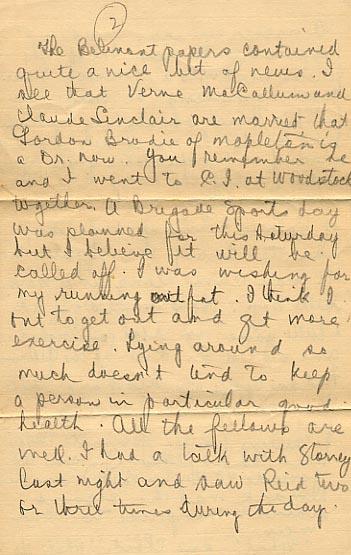 2
The Belmont papers contained
quite a nice bit of news. I
see that Verne MacCallum and
Claude Sinclair are married that
Gordon Brodie of Mapleton is
a Dr. now. You remember he
and I went to C.I. at Woodstock
together. A Brigade Sports day
was planned for this Saturday
but I believe it will be
called off. I was wishing for
my running outfit. I think I
out to get out and get more
exercise. Lying around so
much doesn't tend to keep
a person in particular good
health. All the fellows are
well. I had a talk with
last night and saw Reid two
or three times during the day.